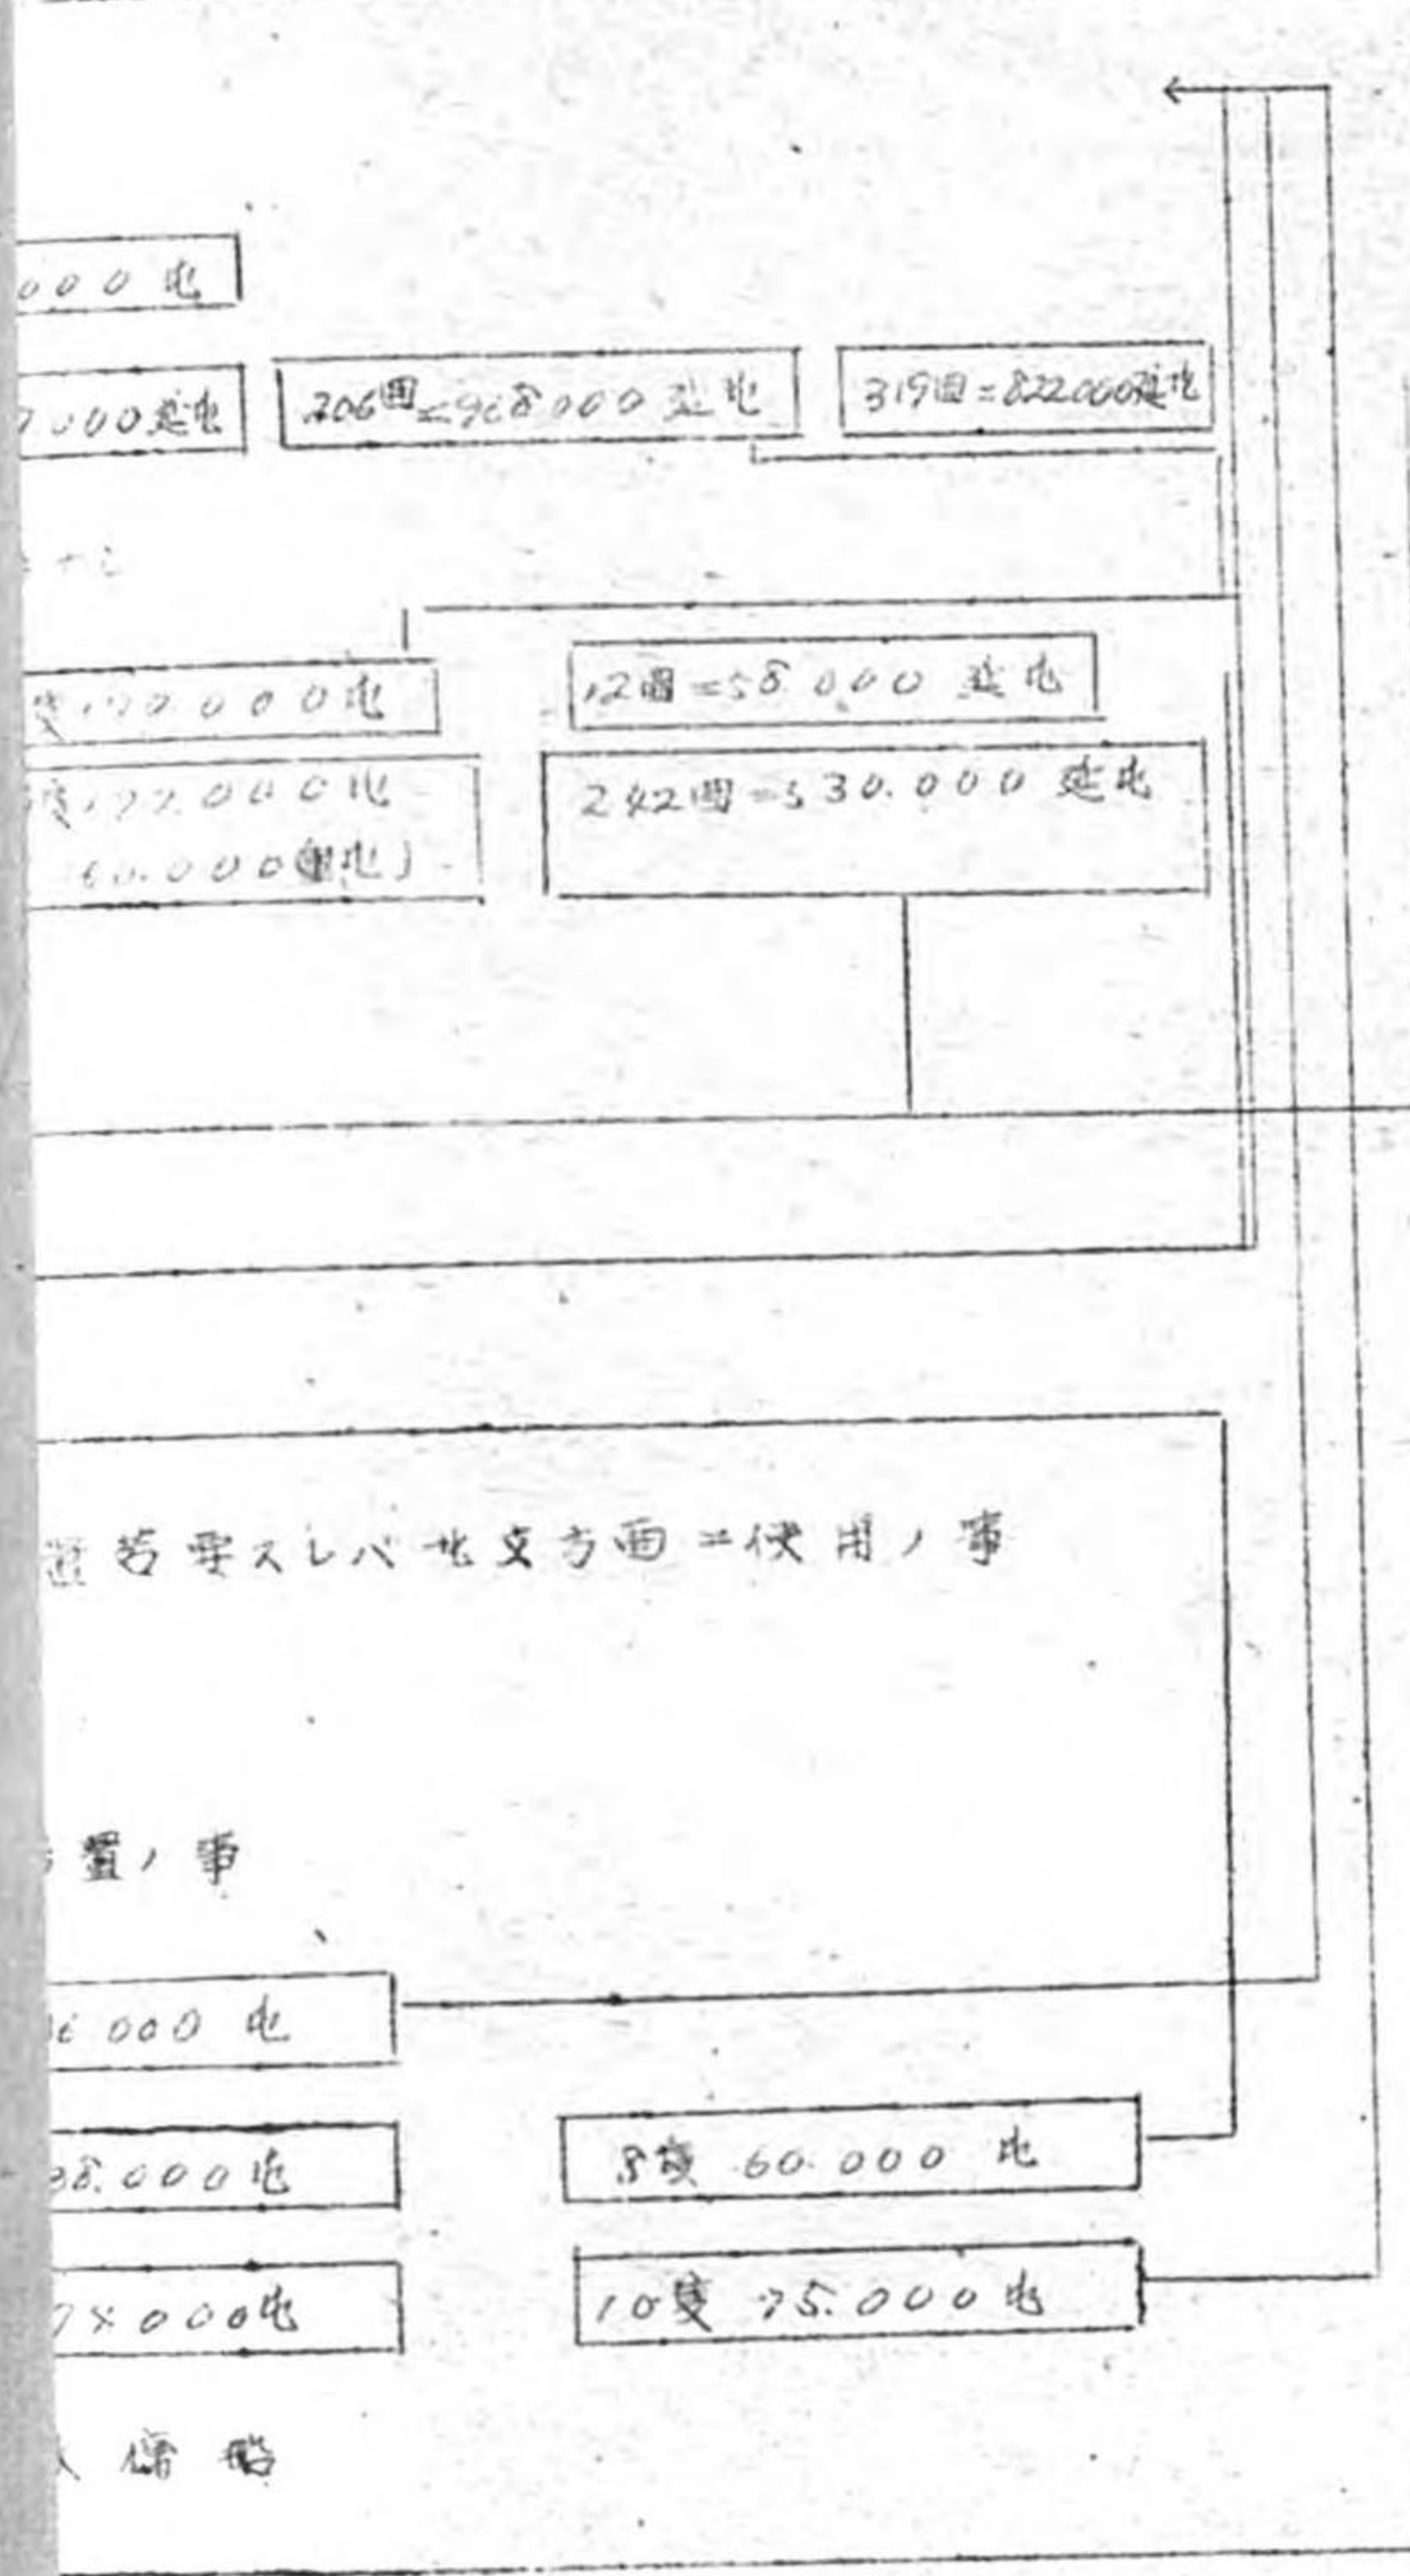 000 屯
000延屯
206回=968000 延屯
319回=822000延屯
000屯
12回=58.000 延屯
隻 000屯
60.000 屯)
242回=530.000 延屯
若要スレバ北支方面ニ使用ノ事
置ノ事
6000 屯
38.000屯
8隻 60.000 屯
74000屯
10隻 75.000屯
傭船